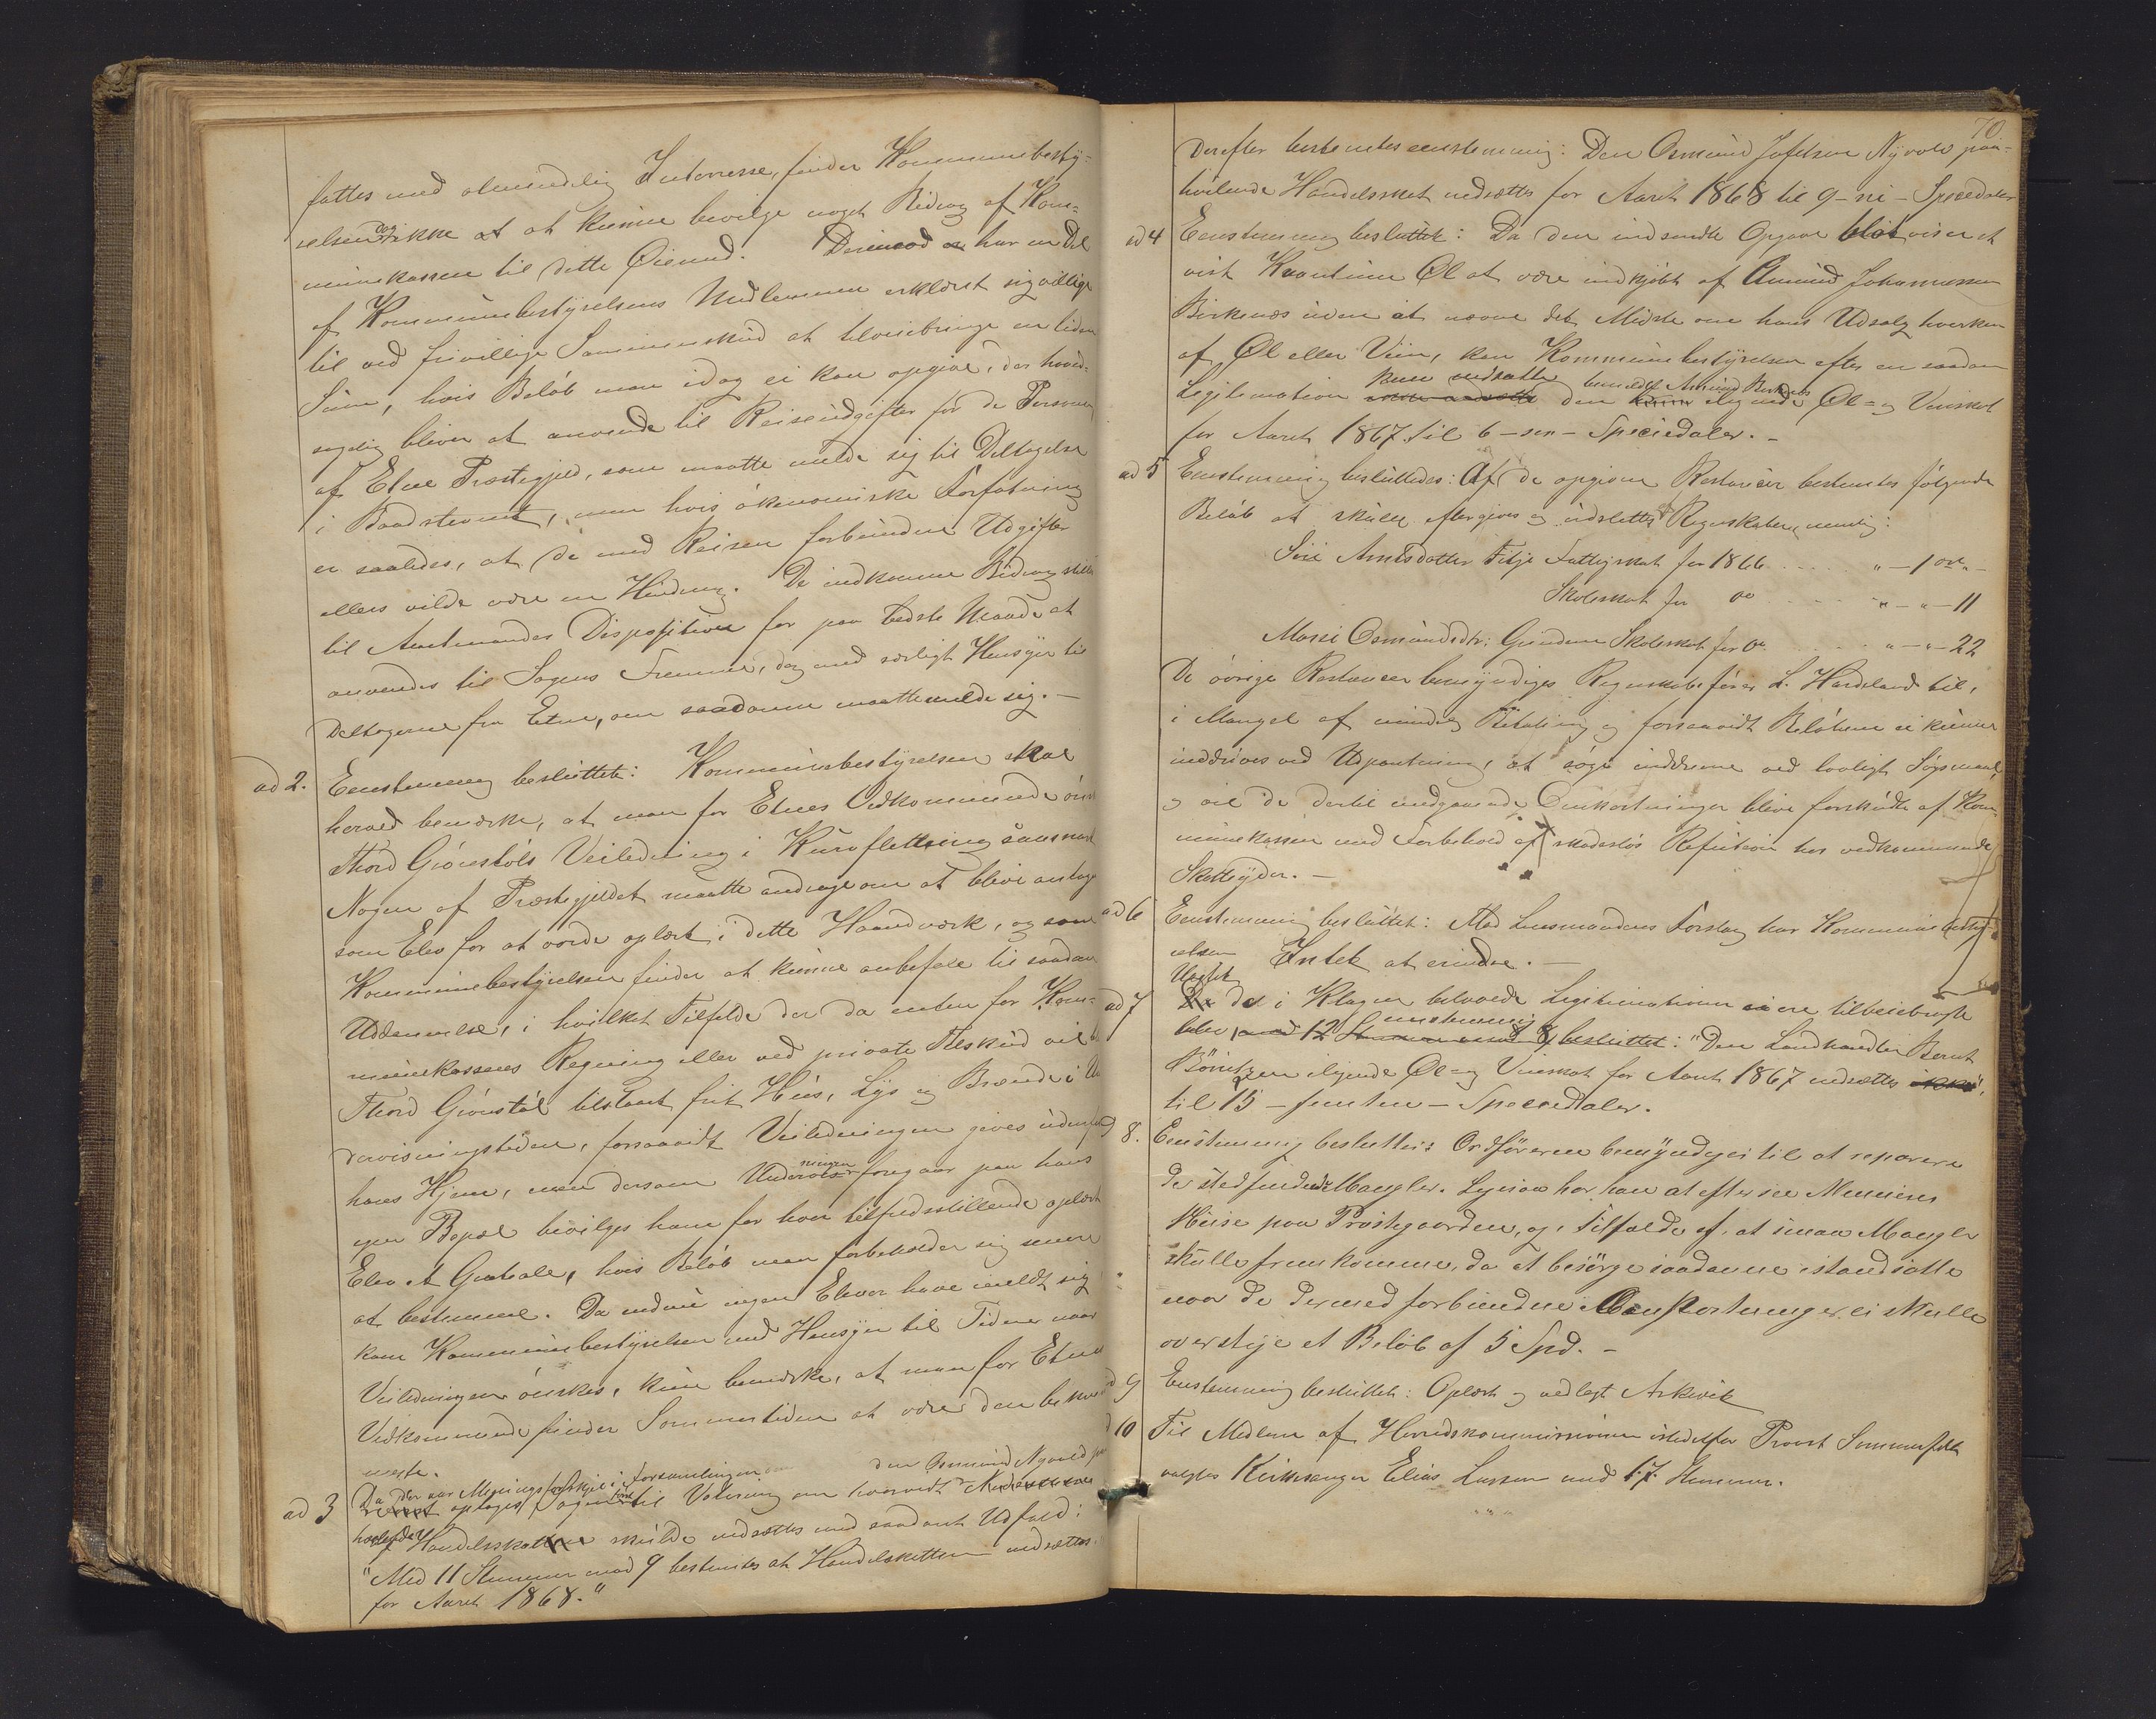 fattes med almindelig Interresse, finder Kommunebesty-
relsen dog ikke at at kunne bevilge noget Bidrag af Kom-
munekassen til dette Øiemed. Derimod har en Del
af Kommunebestyrelsens Medlemmer erklæret sig villige
til ved frivillige Sammenskud at tilveiebringe en liden
Sum, hvis Beløb man idag ei kan opgive, der hoved-
sagelig bliver at anvende til Reiseudgifter for de Personer
af Etne Præstegjeld, som maatte melde sig til Deltagelse
i Baadstevnet, men hvis økonomiske Forfatning
er saaledes, at de med Reisen forbundne Udgifter
ellers vilde være en Hindring. De indkomne Bidrag stilles
til Amtmandens Disposition for paa bedste Maade at
anvendes til Sagens Fremme, dog med særligt Hensyn til
Deltagerne fra Etne, om saadanne maatte melde sig. –
ad 2. Eenstemmig besluttet: Kommunebestyrelsen skal
herved bemærke, at man for Etnes Vedkommende ønsker
Thord Grønstøls Veiledning i Kurvfletning saasnart
Nogen af Præstegjeldet maatte andrage om at blive antaget
som Elev for at vorde oplært i dette Haandværk, og som
Kommunebestyrelsen finder at kunne anbefale til saadan
Uddannelse, i hvilket Tilfælde der da enten for Kom-
munekassens Regning eller ved private Tilskud vil blive
Thord Grønstøl tilstaaet frit Huus, Lys og Brænde i Un-
dervisningstiden, forsaavidt Veiledningen gives udenfor
hans Hjem, men dersom Undervisningen foregaar paa hans
egen Bopæl bevilges ham for hver tilfredsstillende oplært
Elev et Godtgjørelse, hvis Beløb man forbeholder sig senere
at bestemme. Da endnu ingen Elever have meldt sig
kan Kommunebestyrelsen med Hensyn til Tiden naar
Veiledningen ønskes, kun bemærke, at man for Etnes
Vedkommende finder Sommertiden at være den bekvem-
meste.
ad 3 Da der var Meningsforskjel i Forsamlingen den Osmund Nyvold paa
optages Sagen først til Votering om hvorvidt
hvilende Handelsskat skulde nedsættes med saadant Udfald:
"Med 11 Stemmer mod 9 bestemtes at Handelsskatten nedsættes
for Aaret 1868."
70.
Derefter bestemtes eenstemmig: Den Osmund Jofelsen Nyvold paa-
hvilende Handelsskat nedsættes for Aaret 1868 til 9 – ni – Speciedaler
ad 4 Eenstemmig besluttet: Da den indsendte Opgave blot viser et
vist Kvantum Øl at være indkjøbt af Amund Johannessen
Birkenæs uden at nævne det Mindste om hans Udsalg hverken
af Øl eller Viin, kan Kommunebestyrelsen efter en saadan
Legitimation kun nedsætte den bemeldte Amund Birkenæs ilignede Øl- og Vinskat
for Aaret 1867 til 6 – sex – Speciedaler. –
ad 5 Eenstemmig besluttedes: Af de opgivne Restancer bestemtes følgende
Beløb at skulle eftergives og udslettes af Regnskabet, nemlig:
Siri Arnesdatter Fitje Fattigskat for 1866 . . . . . " – 1 ort " –
Skoleskat for do . . . . . " – " – 11
Massi Osmundsdtr: Grindene Skoleskat for do . . . . . " – " – 22
De øvrige Restancer bemyndiges Regnskabsfører L. Hardeland til,
i Mangel af mindelig Betaling og forsaavidt Beløbene ei kunne
inddrives ved Udpantning, at søge inddrevne ved lovligt Søgsmaal,
og vil de dertil medgaaende Omkostninger blive forskudte af Kom-
munekassen med Forbehold af skadesløs Refusion hos vedkommende
Skatteyder. –
ad 6 Eenstemmig besluttet: Mod Lensmandens Forslag har Kommunebesty-
relsen Intet at erindre. –
ad 7 Uagtet de i Klagen belovede Legitimationer ei ere tilveiebragte
blev eenstemmig besluttet: "Den Landhandler Bernt
Børnitzen ilignede Øl- og Vinskat for Aaret 1867 nedsættes
til 15 – femten – Speciedaler.
8. Eenstemmig besluttes: Ordføreren bemyndiges til at reparere
de stedfindende Mangler. Ligesaa har han at efterse
Huse paa Præstegaarden, og i Tilfælde af, at smaa Mangler
skulle fremkomme, da at besørge saadanne istandsatte
naar de dermed forbundne Omkostninger ei skulle
overstige et Beløb af 5 Spd. –
9 Eenstemmig besluttet: Oplæst og vedlagt Arkivet
10 Til Medlem af Herredskommissionen istedetfor Provst Sommerfeldt
valgtes Kirkesanger Elias Larssen med 17 Stemmer.
" " "